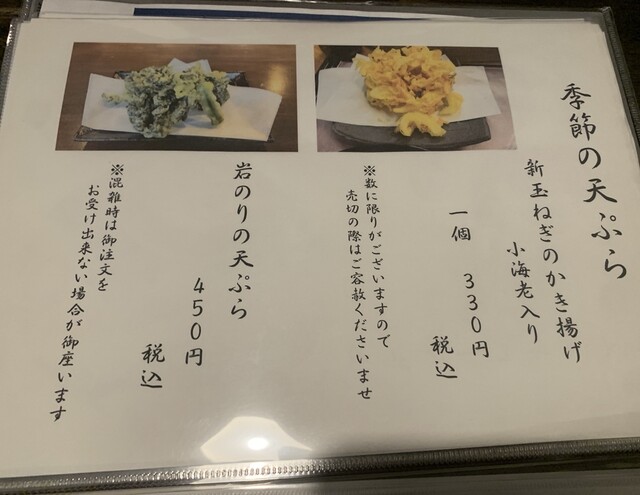 季節の天ぷら
新玉ねぎのかき揚げ
小海老入り
一個 330円
税込
※数に限りがございますので
売切の際はご容赦くださいませ
岩のりの天ぷら
450円
税込
※混雑時は御注文を
お受け出来ない場合が御座います